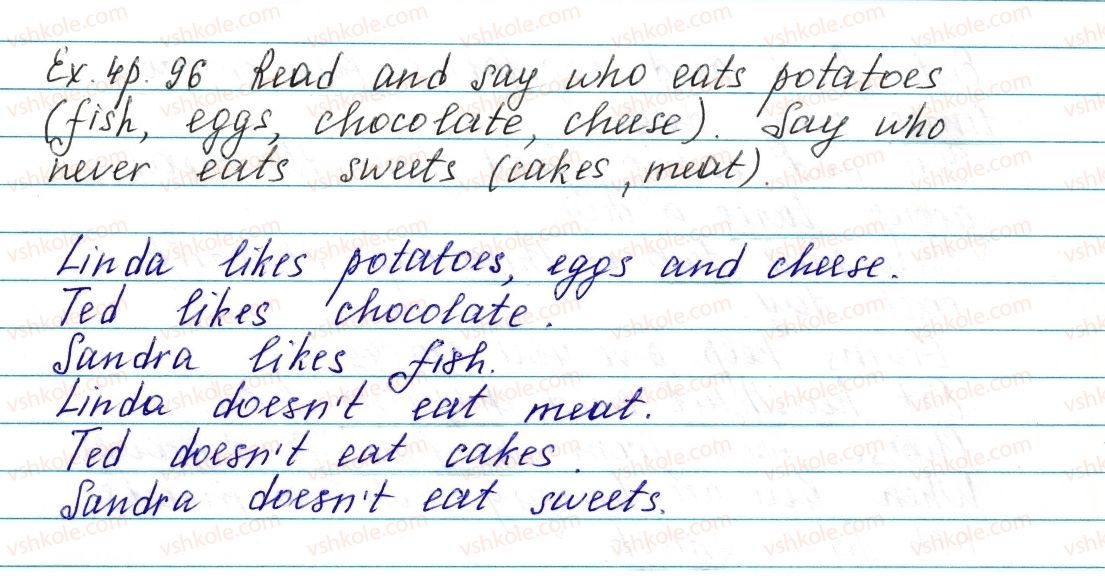 Ex. 4p. 96 Read and say who eats potatoes
(fish, eggs, chocolate, cheese). Say who
never eats sweets (cakes, meat).
Linda likes potatoes, eggs and cheese.
Ted likes chocolate.
Sandra likes fish.
Linda doesn't eat meat.
Ted doesn't eat cakes.
Sandra doesn't eat sweets.